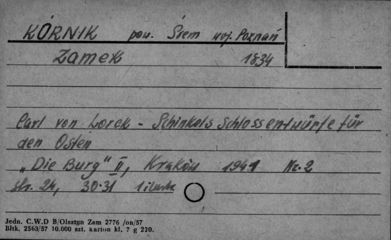 KÓRNIK pow. Śrem woj. Poznań
Zamek 1834
Carl von Lorck - Schinkels Schlossentwürfe für
den Osten
"Die Burg" II, Kraków 1941 Nr. 2
str. 24, 30-31
Jedn. C.W.D B/Olsztyn Zam 2776 /on/57
Błtk. 2563/57 10.000 szt. karton kl. 7 g 220.